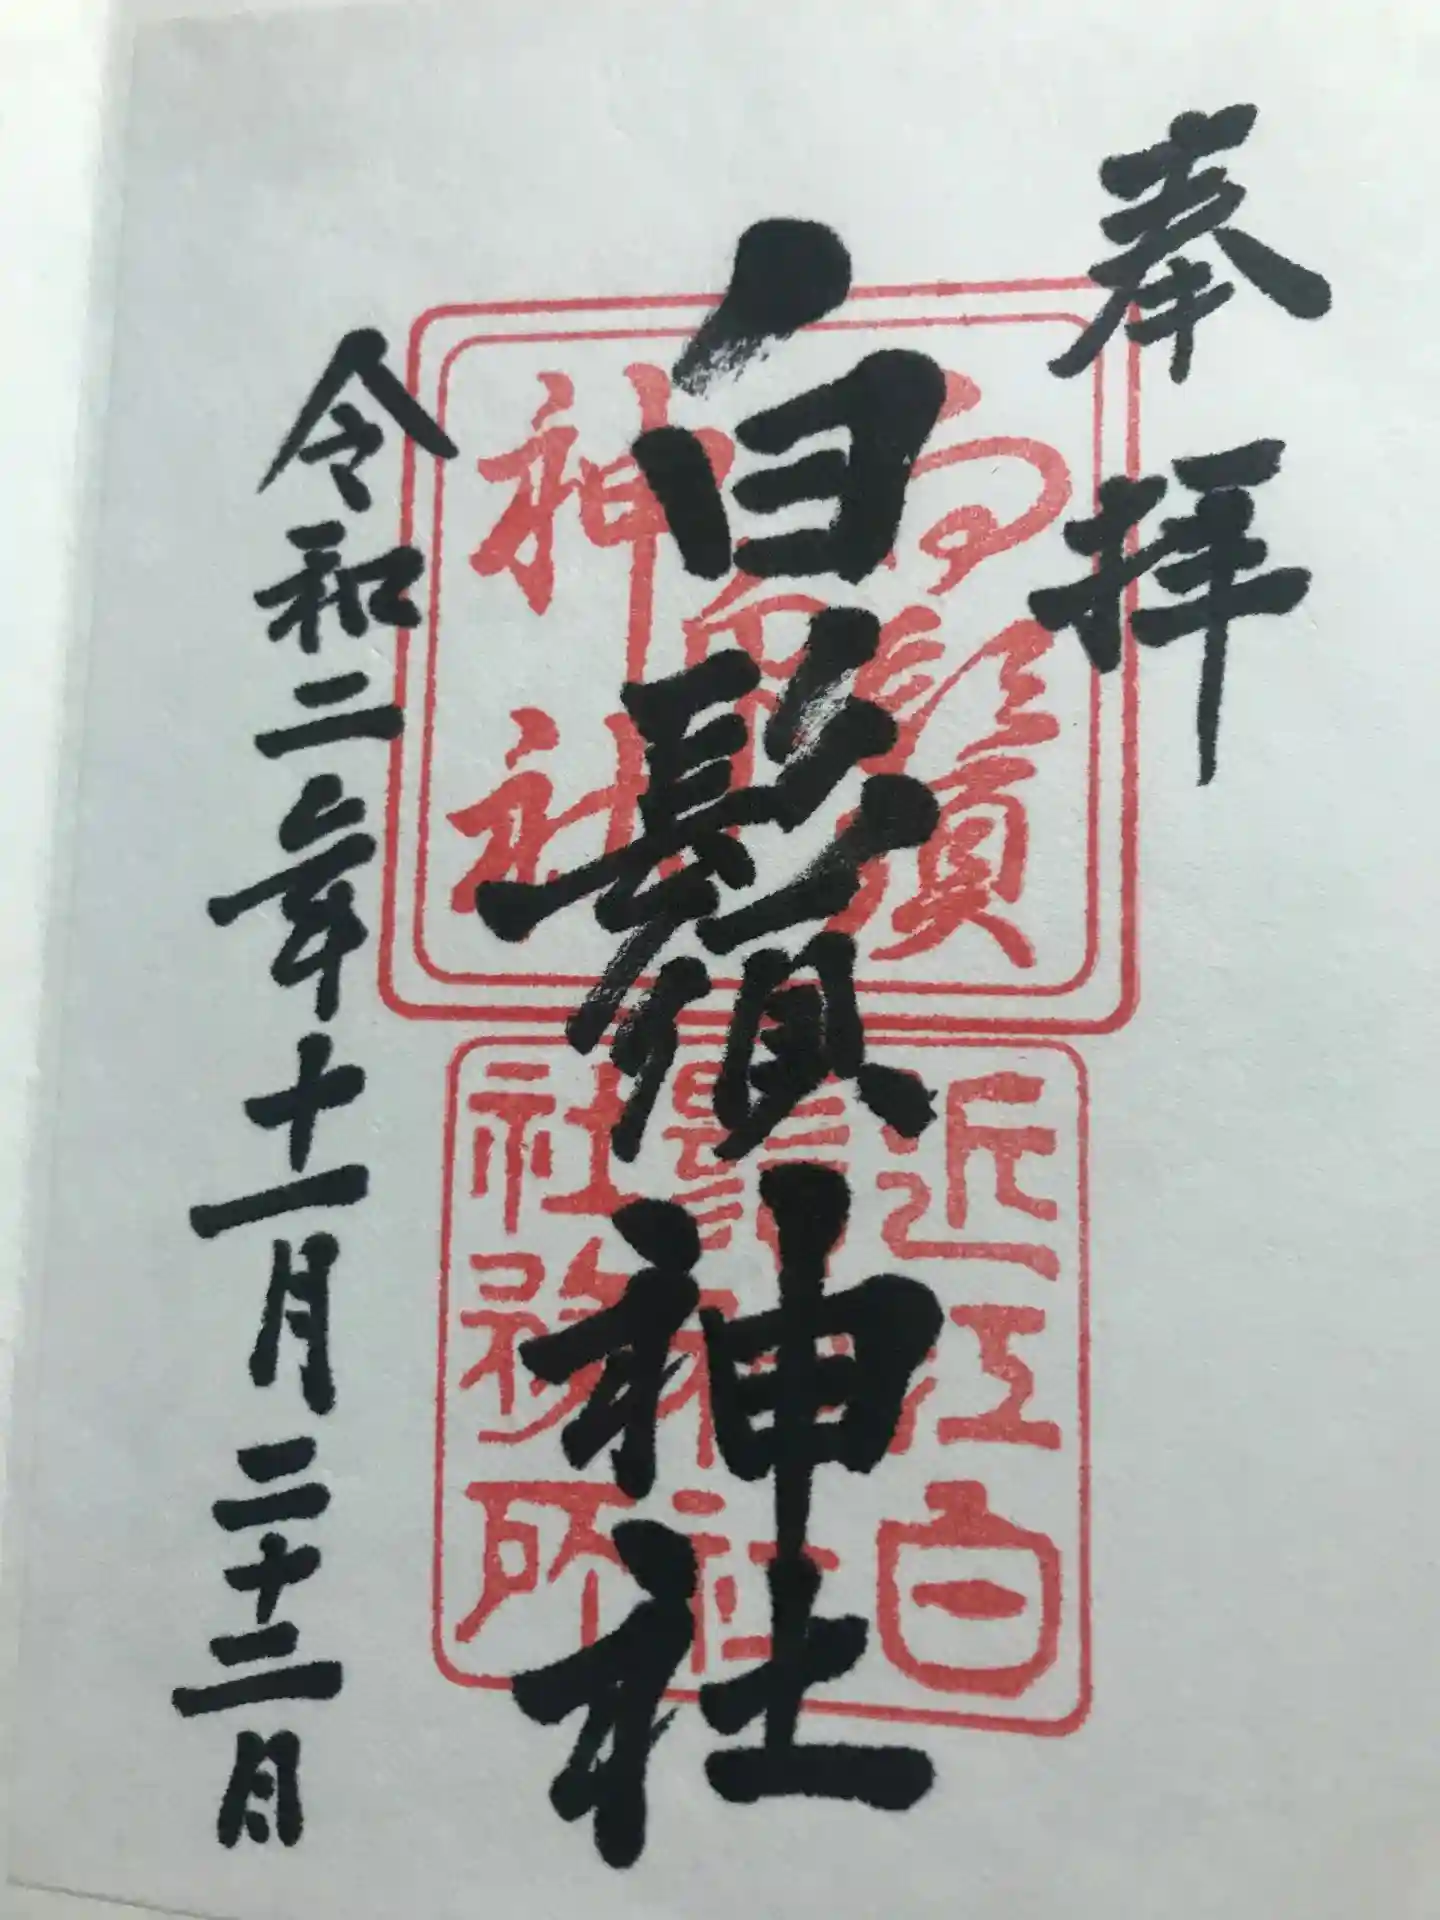 奉拝
白鬚神社
令和二年十一月二十三日
白鬚
神社
近江白
鬚神社
社務所